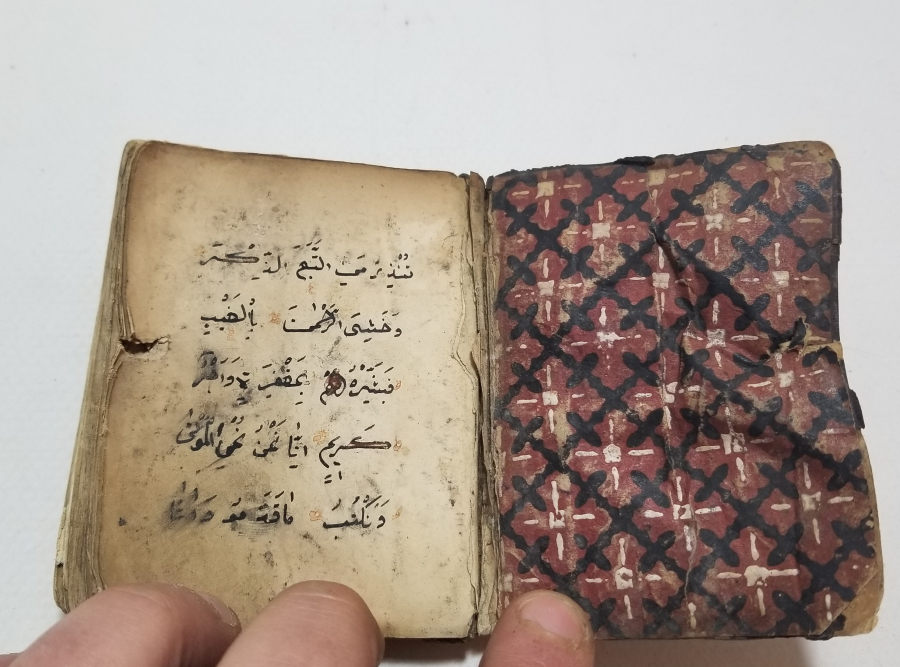 تُنْذِرُ مَنِ اتَّبَعَ الذِّكْرَ
وَخَشِيَ الرَّحْمٰنَ بِالْغَيْبِ
فَبَشِّرْهُ بِمَغْفِرَةٍ وَاَجْرٍ
كَرِيمٍ اِنَّا نَحْنُ نُحْيِ الْمَوْتٰى
وَنَكْتُبُ مَا قَدَّمُوا